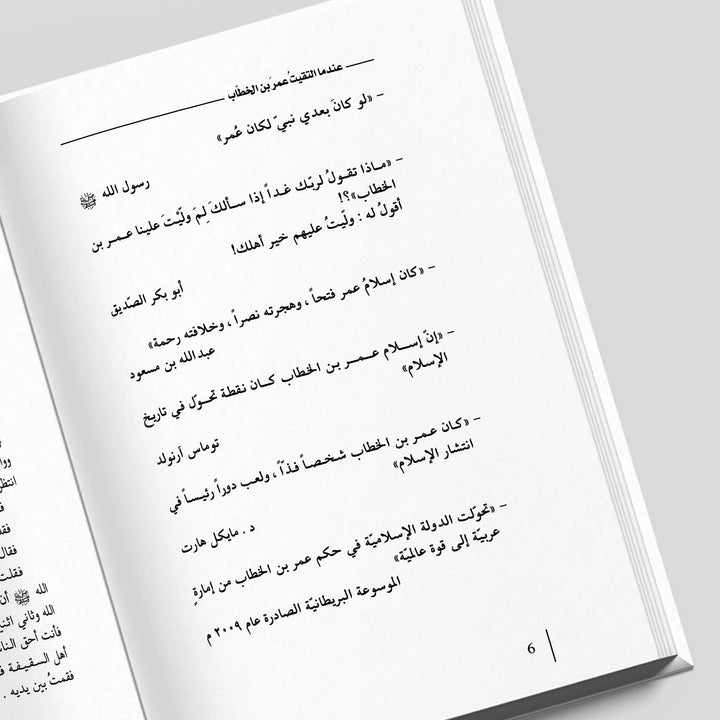 عندما التقيتُ عمرَ بن الخطاب
– «لو كانَ بعدي نبيّ لكان عُمر»
رسول الله ﷺ
– «ماذا تقولُ لربّك غداً إذا سألكَ لِمَ ولّيْتَ علينا عمر بن
الخطاب»؟!
أقولُ له : ولّيتُ عليهم خير أهلك!
أبو بكر الصّديق
– «كان إسلامُ عمر فتحاً ، وهجرته نصراً ، وخلافته رحمة»
عبدالله بن مسعود
– «إنّ إسلام عمر بن الخطاب كان نقطة تحوّل في تاريخ
الإسلام»
توماس آرنولد
– «كان عمر بن الخطاب شخصاً فذّاً ، ولعب دوراً رئيساً في
انتشار الإسلام»
د . مايكل هارت
– «تحوّلت الدولة الإسلاميّة في حكم عمر بن الخطاب من إمارةٍ
عربيّة إلى قوة عالميّة»
الموسوعة البريطانيّة الصادرة عام ٢٠٠٩ م
6
انتظ
فقال
فقلت
الله ﷺ أن
الله وثاني اثني
فأنت أحق النا
أهل السقيفة
فقمتُ بين يديه .